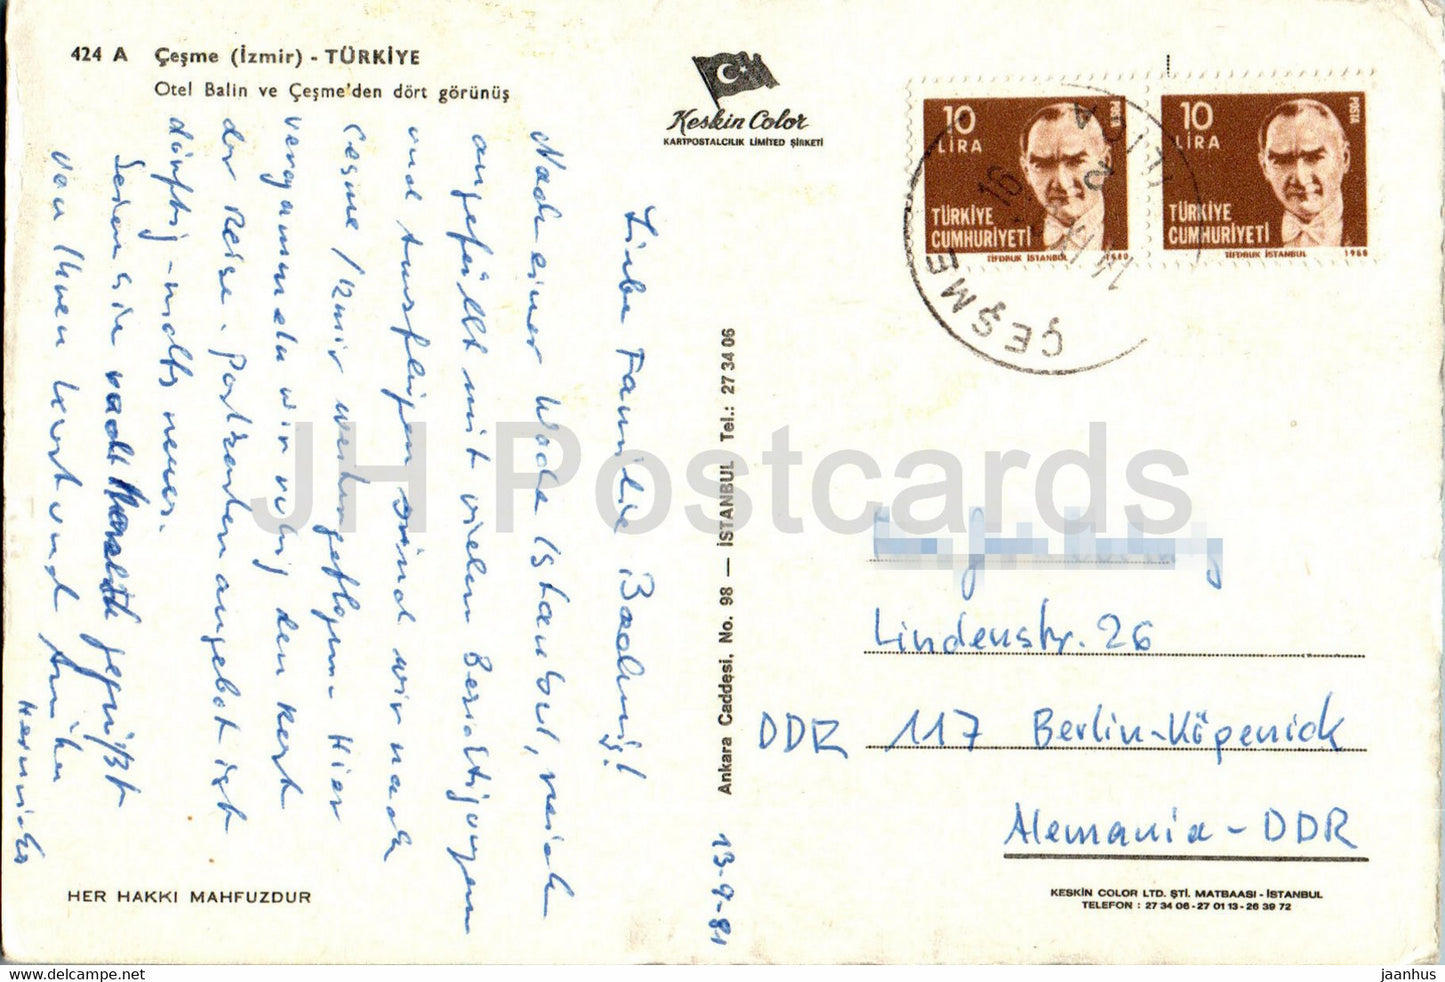 424 A Çeşme (İzmir) - TÜRKİYE
Otel Balin ve Çeşme'den dört görünüş
Keskin Color
KARTPOSTALCILIK LIMITED ŞİRKETİ
10 LİRA
TÜRKİYE
CUMHURİYETİ
TİFDRUK İSTANBUL 1980
10 LİRA
POSTA
TÜRKİYE
CUMHURİYETİ
TİFDRUK İSTANBUL
ÇEŞME
Liebe Familie
Nach einer Woche Istanbul, reich
angefüllt mit vielen Besichtigungen
und Ausflügen sind wir nach
Çeşme/Izmir weitergeflogen. Hier
vergammeln wir ruhig den Rest
der Reise. Postkartenangebot ist
dürftig - nichts neues.
Seien Sie recht herzlich gegrüßt
von Ihren
13-9-81
Ankara Caddesi, No. 98 — İSTANBUL Tel.: 27 34 06
Lindenstr. 26
DDR 117 Berlin-Köpenick
Alemania - DDR
HER HAKKI MAHFUZDUR
KESKİN COLOR LTD. ŞTİ. MATBAASI - İSTANBUL
TELEFON : 27 34 06 - 27 01 13 - 26 39 72
JH Postcards
www.delcampe.net
jaanhus